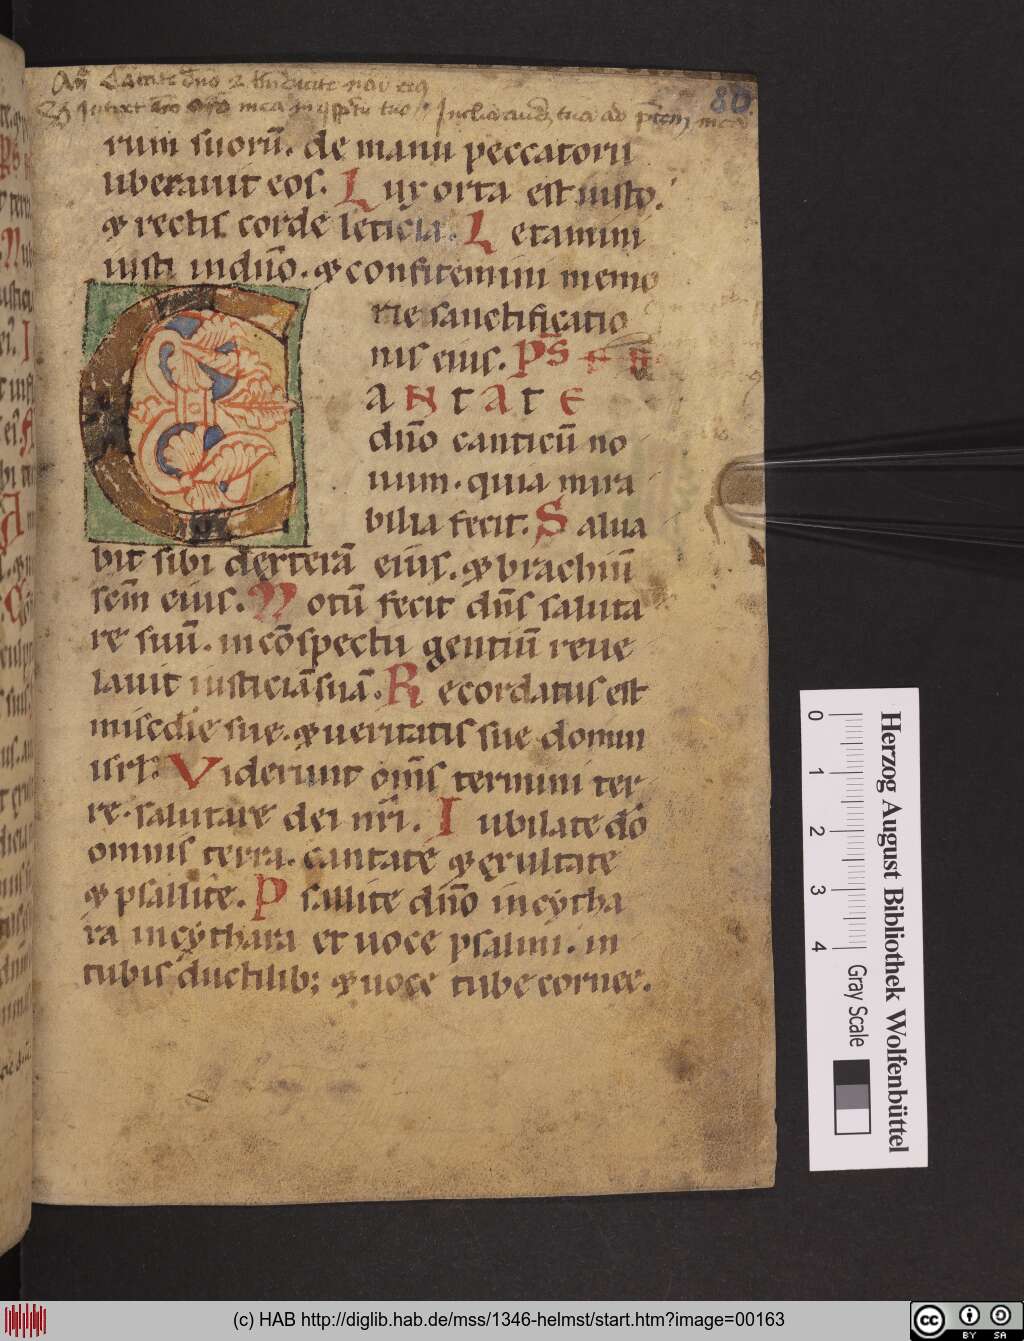 80
rum suorū. de manu peccatoru
liberauit eos. Lux orta est iusto.
& rectis corde leticia. Letamini
iusti in dño. & confitemini memo
rie sanctificatio
nis eius. Ps
CANTATE
dño canticū no
uum. quia mira
bilia fecit. Salua
bit sibi dexterā eius. & brachiū
sc̄m eius. Notū fecit dñs saluta
re suū. in cōspectu gentiū reue
lauit iusticiā suā. Recordatus est
misc̄die sue. & ueritatis sue domui
isrł. Viderunt om̄s termini ter
re. salutare dei nr̄i. Iubilate dō
omnis terra. cantate & exultate
& psallite. Psallite dño in cytha
ra in cythara et uoce psalmi. in
tubis ductilib; & uoce tube cornee.
Herzog August Bibliothek Wolfenbüttel
0 1 2 3 4
Gray Scale
(c) HAB http://diglib.hab.de/mss/1346-helmst/start.htm?image=00163
cc BY SA